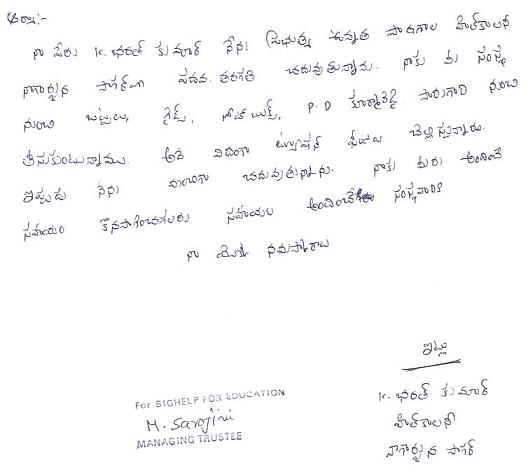 ఆర్యా:-
నా పేరు K. భరత్ కుమార్ నేను ప్రభుత్వ ఉన్నత పాఠశాల హిల్‌కాలనీ
నాగార్జున సాగర్‌లో పదవ తరగతి చదువుతున్నాను. నాకు మీ సంస్థ
నుంచి బట్టలు, గైడ్స్, నోట్‌బుక్స్, P.D సారుగారి నుంచి
తీసుకుంటున్నాము. అదే విధంగా ట్యూషన్ ఫీజులు చెల్లిస్తున్నారు.
ఇప్పుడు నేను బాగా చదువుతున్నాను. నాకు మీరు అందించే
సహాయం కొనసాగించగలరు సహాయం అందించే సంస్థవారికి
నా యొక్క నమస్కారాలు
ఇట్లు
K. భరత్ కుమార్
హిల్‌కాలనీ
నాగార్జున సాగర్
For BIGHELP FOR EDUCATION
M. Sarojini
MANAGING TRUSTEE